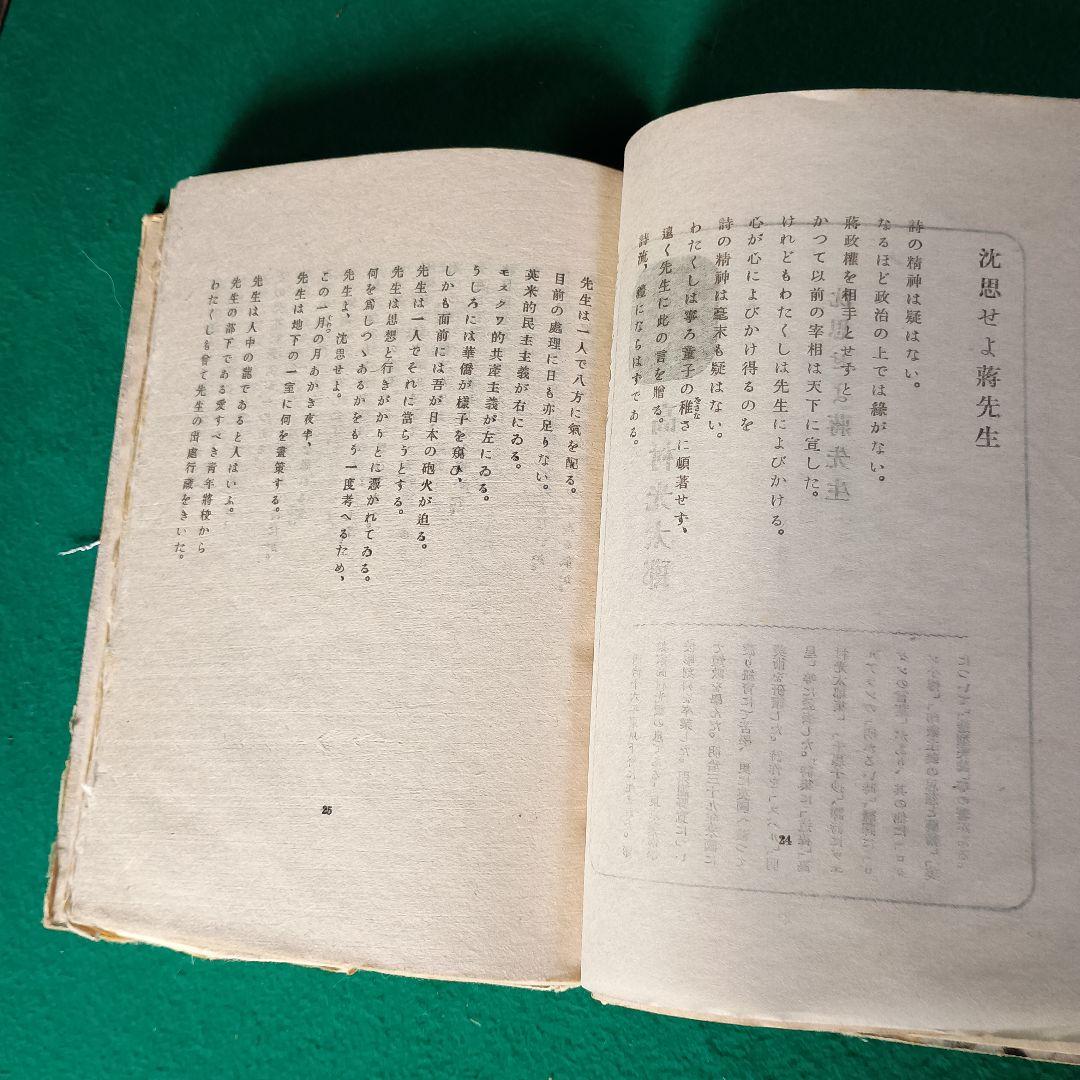 沈思せよ蔣先生
詩の精神は疑はない。
なるほど政治の上では緣がない。
蔣政權を相手とせずと
かつて以前の宰相は天下に宣した。
けれどもわたくしは先生によびかける。
心が心によびかけ得るのを
詩の精神は毫末も疑はない。
わたくしは寧ろ童子の稚さに頓著せず、
をさな
遠く先生に此の言を贈る。
詩流、禮にならはずである。
24
先生は一人で八方に氣を配る。
目前の處理に日も亦足りない。
英米的民主主義が右にゐる。
モスクワ的共產主義が左にゐる。
うしろには華僑が樣子を窺ひ、
しかも面前には吾が日本の砲火が迫る。
先生は一人でそれに當らうとする。
先生は思想と行きがかりとに憑かれてゐる。
何を爲しつゝあるかをもう一度考へるため、
先生よ、沈思せよ。
この一月の月あかき夜半、
先生は地下の一室に何を畫策する。
先生は人中の龍であると人はいふ。
先生の部下である愛すべき靑年將校から
わたくしも曾て先生の出處行藏をきいた。
25